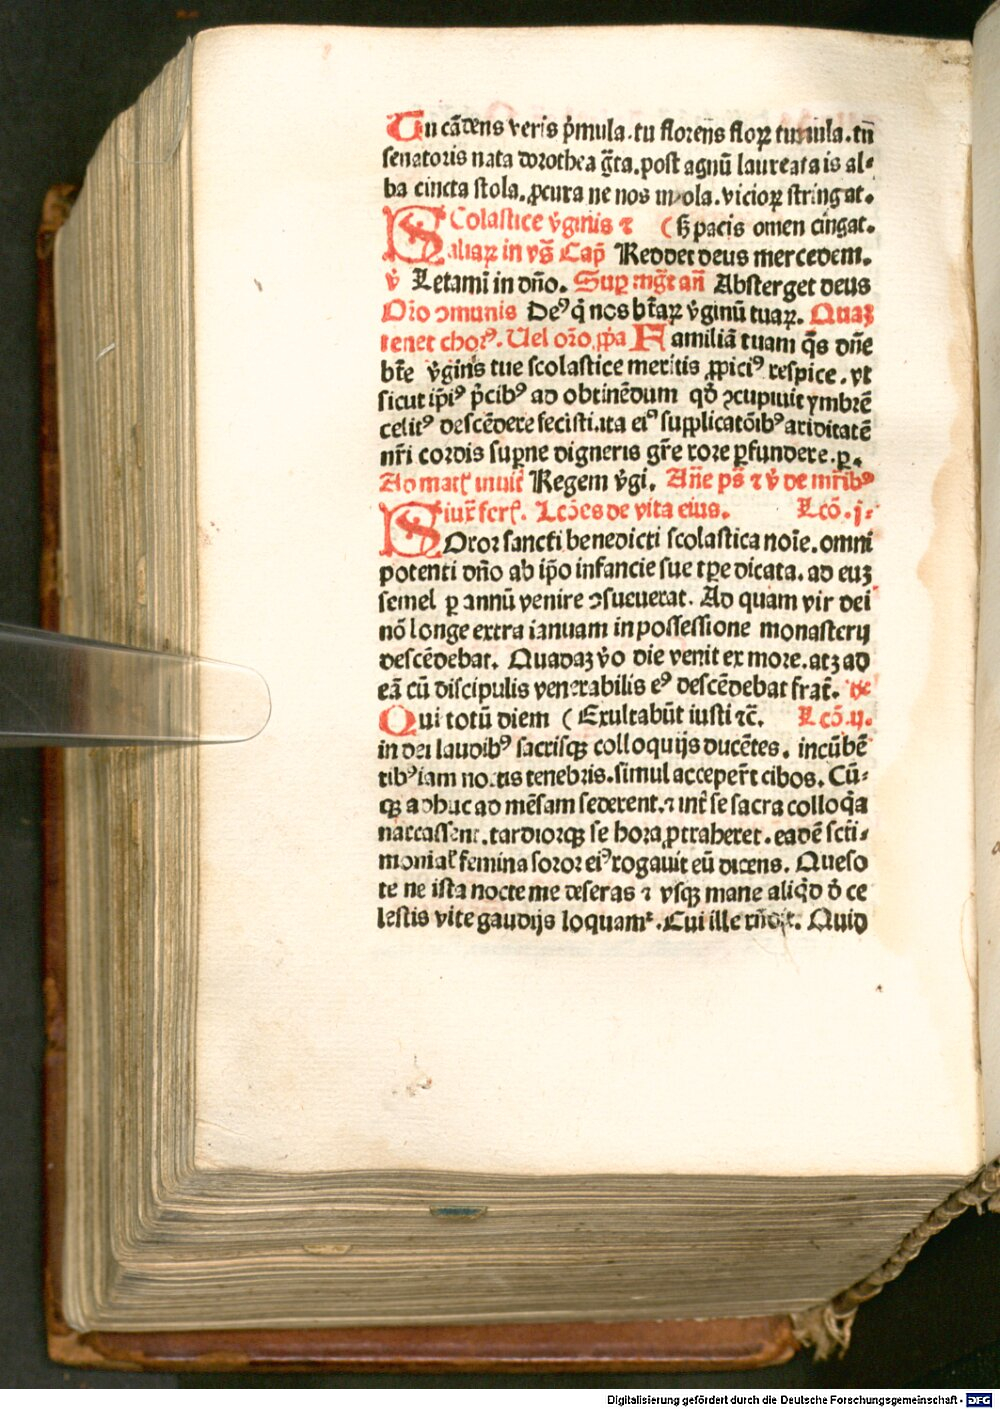 Tu cādens veris p̄mula. tu florens floꝝ tumula. tu
senatoris nata dorothea ḡta. post agnū laureata is al-
ba cincta stola. ꝓcura ne nos mola. vicioꝝ stringat.
SColastice v̄ginis ⁊ ( S̄ pacis omen cingat.
aliaꝝ in vs̄ Cap̄ Reddet deus mercedem.
v̄ Letami in dn̄o. Suꝑ mḡt an̄ Absterget deus
Or̄o ↄmunis Deꝰ q̄ nos bt̄aꝝ v̄ginū tuaꝝ. Quaꝫ
tenet chorꝰ. Uel or̄o. ꝓp̄a Familiā tuam q̄s dn̄e
bt̄e v̄ginis tue scolastice meritis ꝓpiciꝰ respice. vt
sicut ip̄iꝰ p̄cibꝰ ad obtinēdum qd̄ ↄcupiuit ymbrē
celitꝰ descēdere fecisti. ita eiꝰ supplicatōibꝰ ariditatē
nr̄i cordis suꝑne digneris gr̄e rore ꝑfundere. ꝑ.
Ad mat̄ inuit̄ Regem v̄gi. An̄e ps̄ ⁊ v̄ de mr̄ibꝰ
siux̄ fer̄. Lcōes de vita eius. Lcō. j.
SOror sancti benedicti scolastica noīe. omni
potenti dn̄o ab ip̄o infancie sue tꝑe dicata. ad euꝫ
semel ꝑ annū venire ↄsueuerat. Ad quam vir dei
nō longe extra ianuam in possessione monasterij
descēdebat. Quadaꝫ v̄o die venit ex more. atꝫ ad
eā cū discipulis venerabilis eꝰ descēdebat frat̄. ꝛc̄
Qui totū diem ( Exultabūt iusti ⁊c̄. Lcō. ij.
in dei laudibꝰ sacrisqꝫ colloquijs ducētes. incūbē
tibꝰ iam noctis tenebris. simul acceper̄t cibos. Cū-
qꝫ adhuc ad mēsam sederent. ⁊ int̄ se sacra colloq̄a
narrassent. tardiorqꝫ se hora ꝓtraheret. eadē scti-
monial̄ femina soror eiꝰ rogauit eū dicens. Queso
te ne ista nocte me deseras ⁊ vsqꝫ mane aliqd̄ d̄ ce
lestis vite gaudijs loquamᷣ. Cui ille rn̄dit. Quid
Digitalisierung gefördert durch die Deutsche Forschungsgemeinschaft - DFG